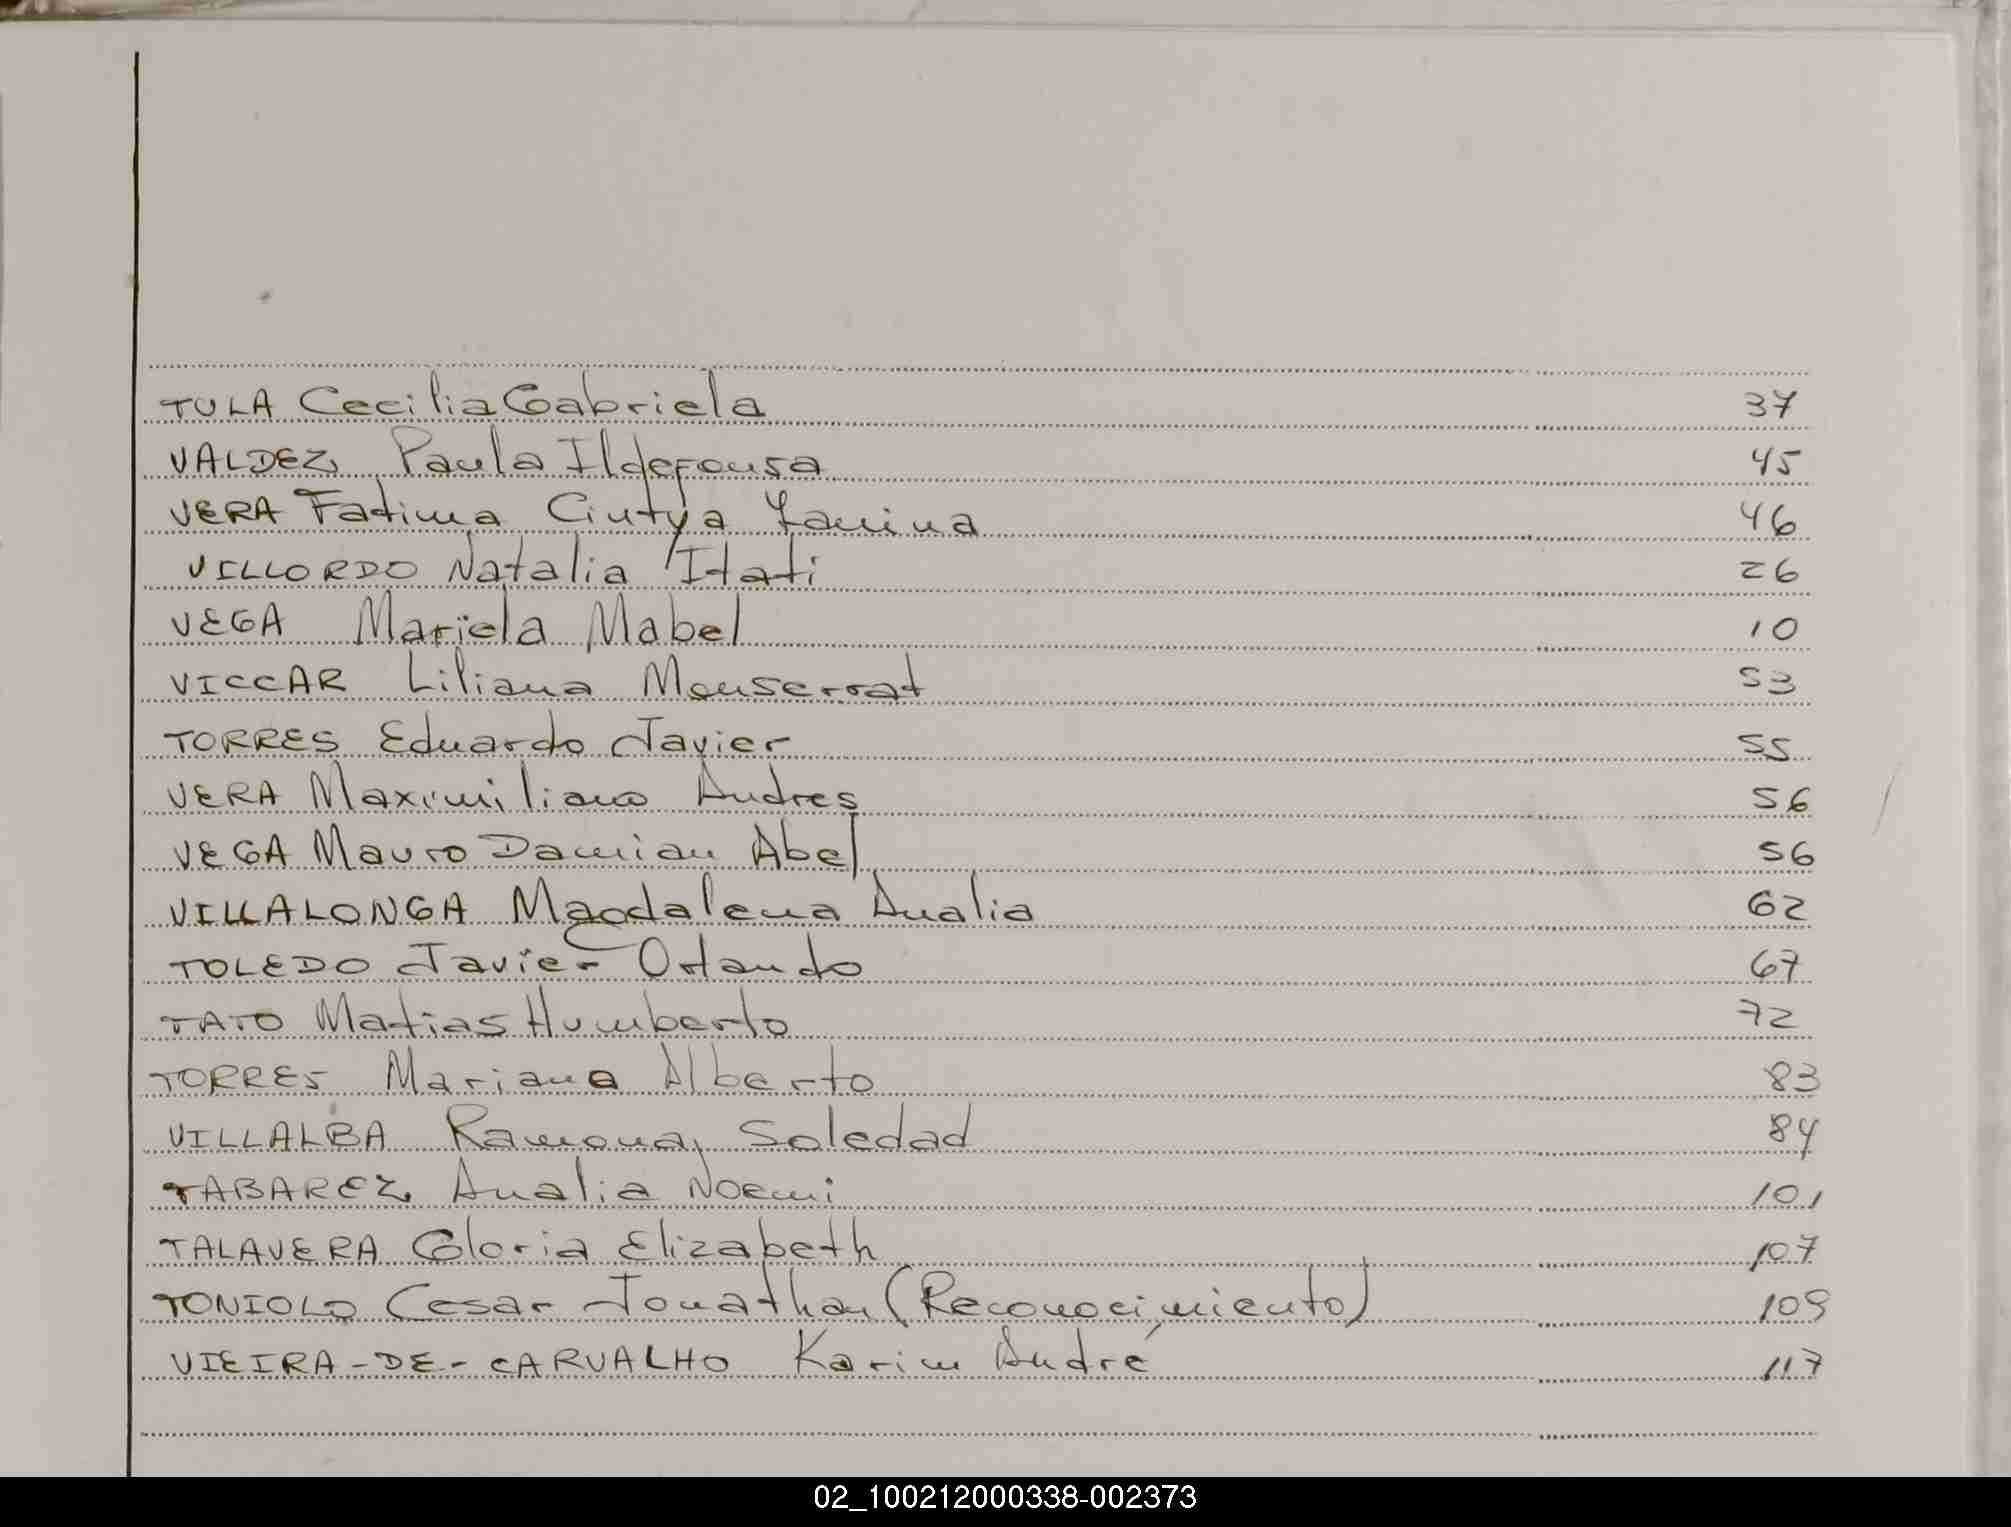 TULA Cecilia Gabriela 37
VALDEZ Paula Ildefonsa 45
VERA Fatima Cintya Yanina 46
VILLORDO Natalia Itati 26
VEGA Mariela Mabel 10
VICCAR Liliana Monserrat 53
TORRES Eduardo Javier 55
VERA Maximiliano Andres 56
VEGA Mauro Damian Abel 56
VILLALONGA Magdalena Analia 62
TOLEDO Javier Orlando 67
TATO Matias Humberto 72
TORRES Mariano Alberto 83
VILLALBA Ramona Soledad 84
TABAREZ Analia Noemi 101
TALAVERA Gloria Elizabeth 107
TONIOLO Cesar Jonathan (Reconocimiento) 109
VIEIRA-DE-CARVALHO Karim André 117
02_100212000338-002373